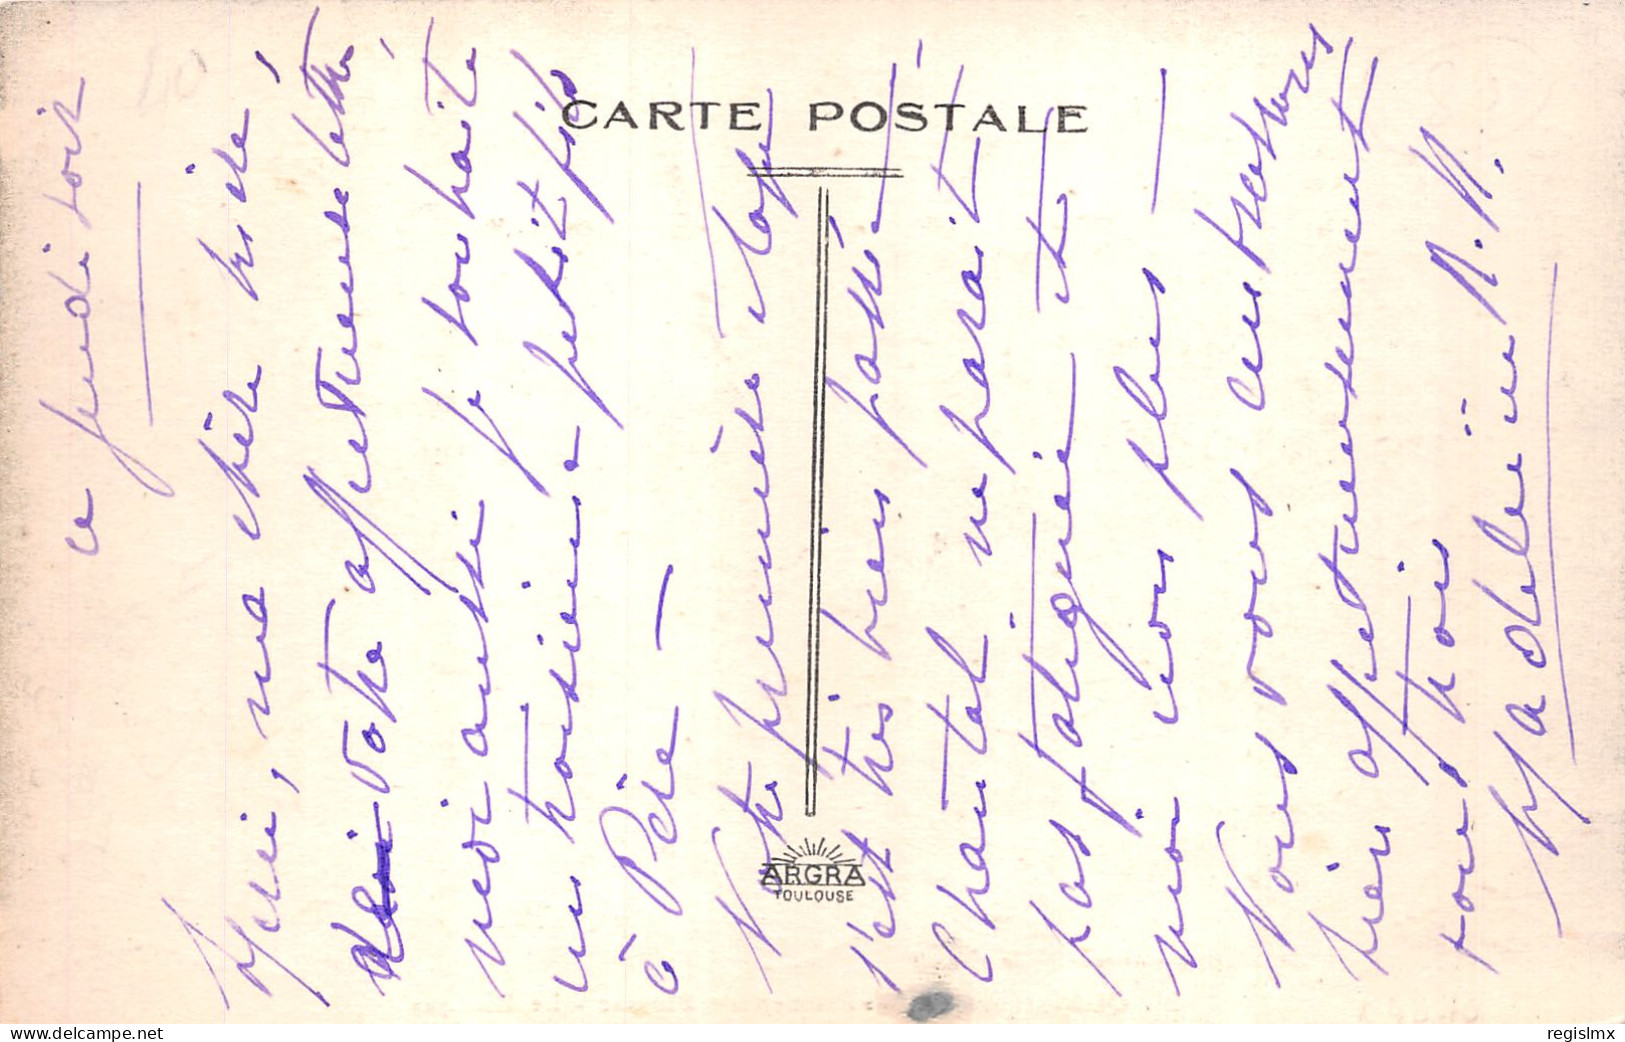 CARTE POSTALE
ARGRA
TOULOUSE
ce jeudi soir
Merci, ma chère
votre affectueuse lettre
moi aussi je souhaite
un troisième petit fils
à Père —
Notre première étape
s'est très bien passée —
Chantal ne paraît
pas fatiguée et
moi non plus —
Nous vous embrassons
bien affectueusement
tous trois
Madeleine M. M.
regislmx